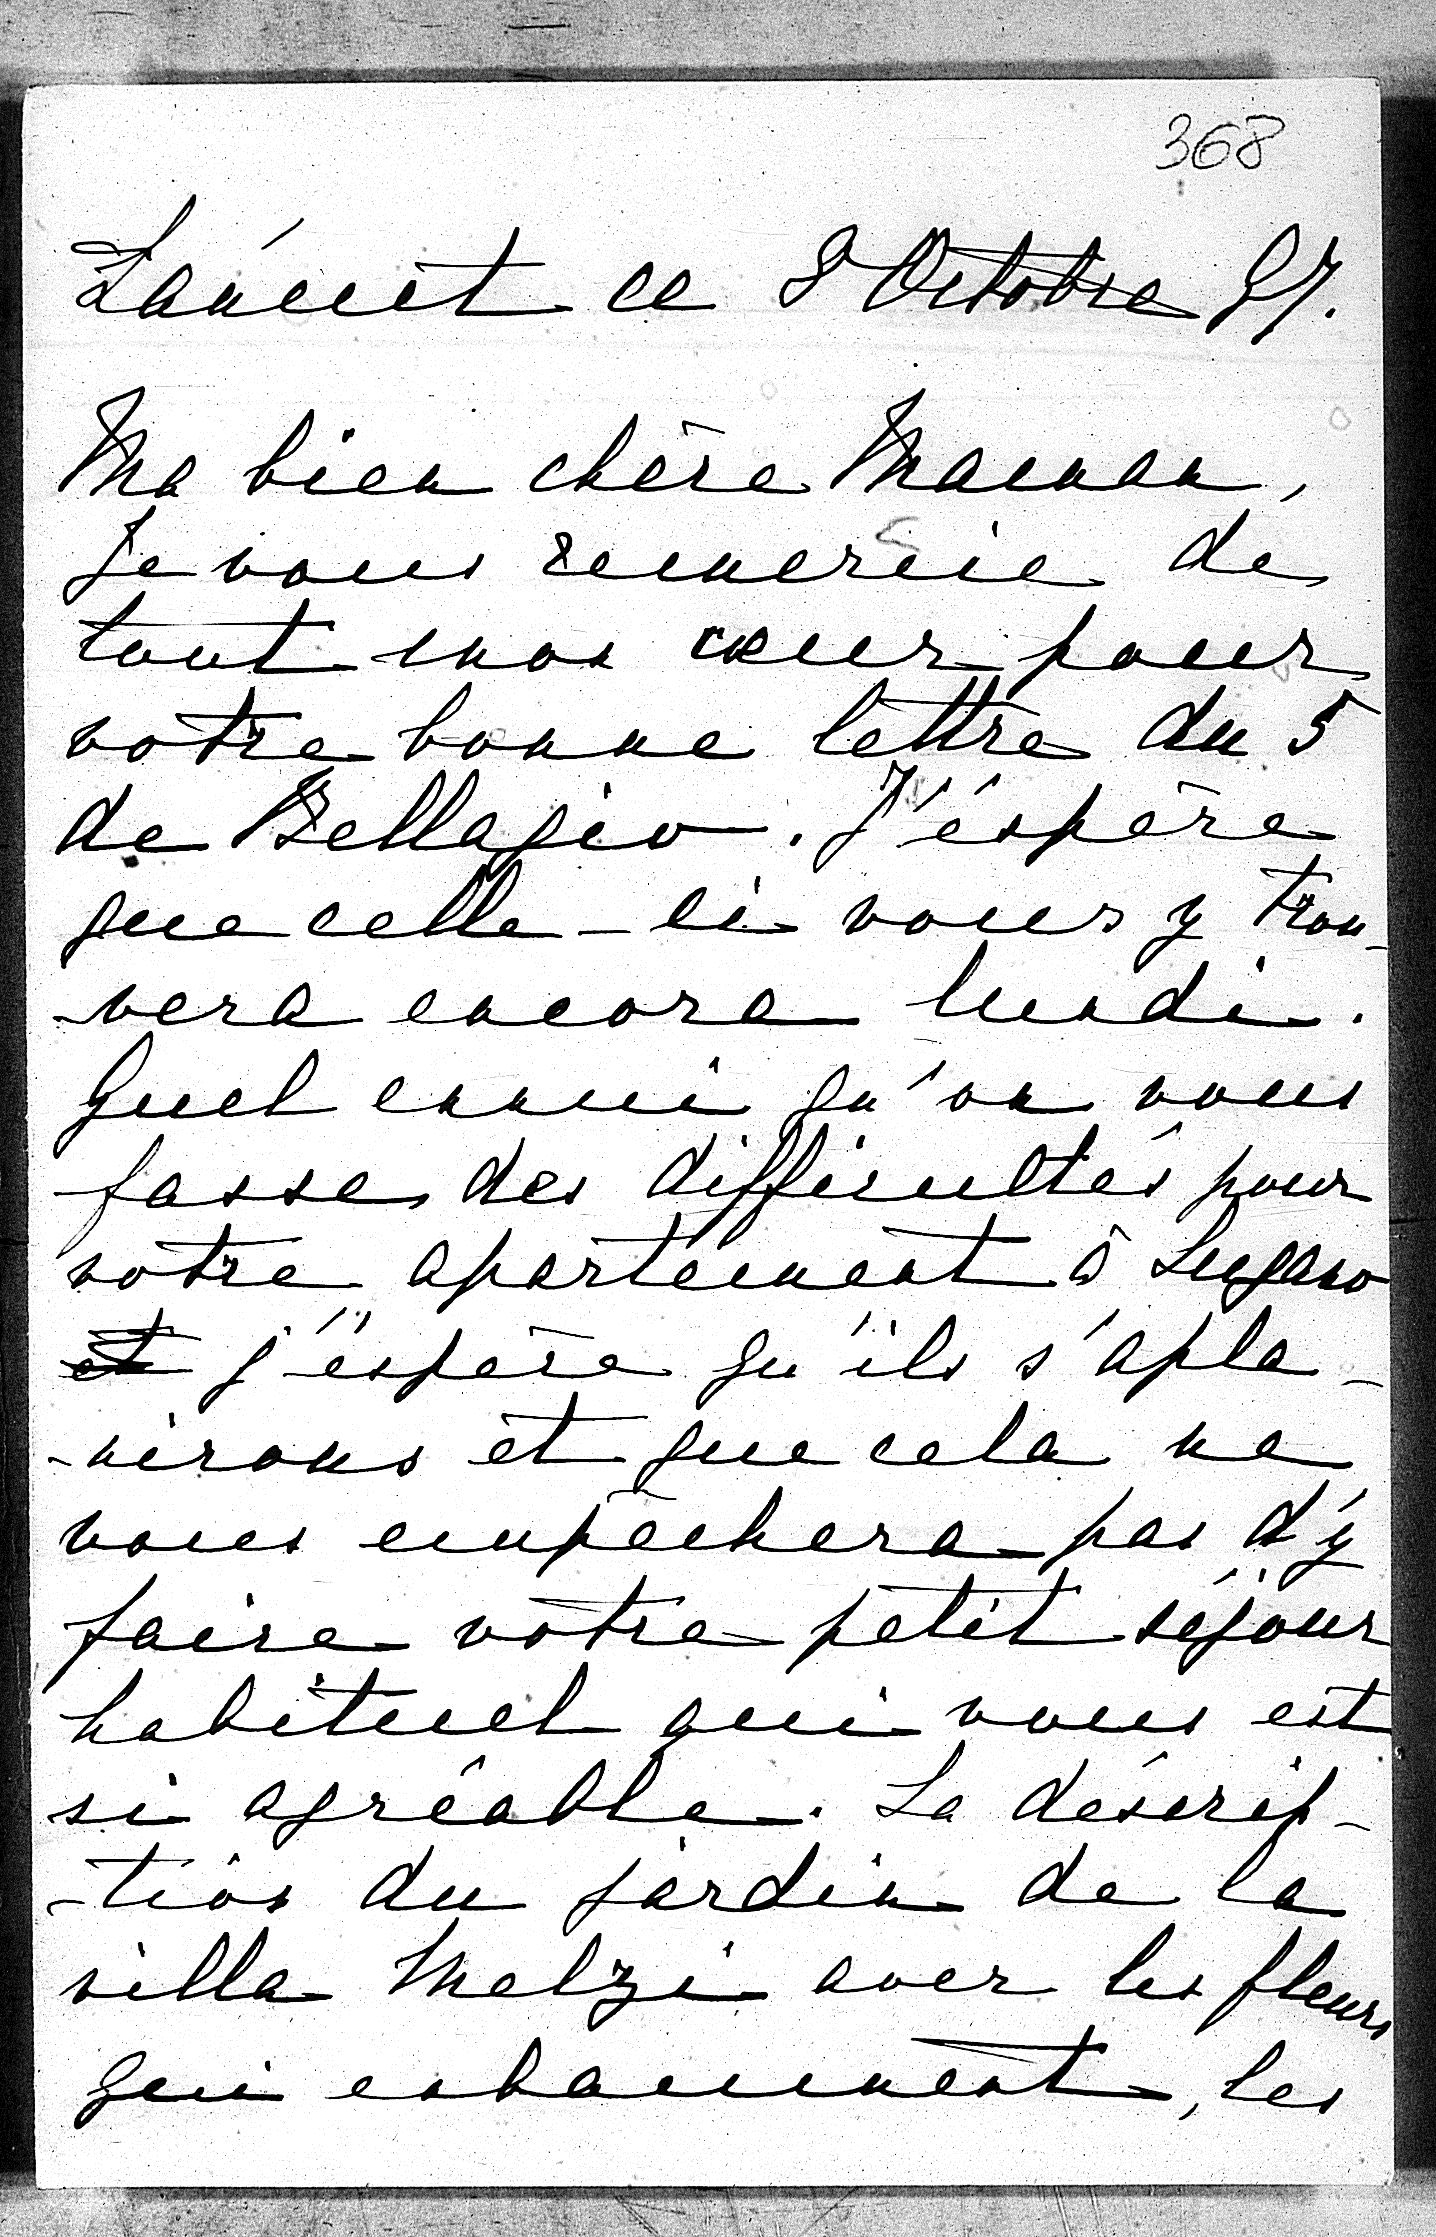 368
Láncut ce 8 Octobre 97.
Ma bien chère Maman,
Je vous remercie de
tout mon cœur pour
votre bonne lettre du 5
de Bellagio. J'éspère
que celle-ci vous y trou-
-vera encore lundi.
Quel ennui qu'on vous
fasse des difficultés pour
votre apartement à Lugano
et j'éspère qu'ils s'apla-
-nirons et que cela ne
vous empêchera pas d'y
faire votre petit séjour
habituel qui vous est
si agréable. La déscrip-
-tion du jardin de la
villa Melzi avec les fleurs
qui enbaument, les